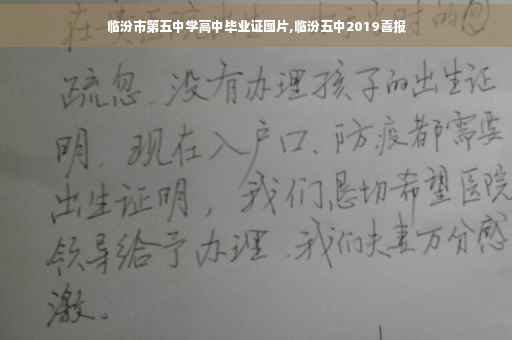 临汾市第五中学高中毕业证图片,临汾五中2019喜报
疏忽.没有办理孩子的出生证
明.现在入户口、防疫都需要
出生证明,我们恳切希望医院
领导给予办理.我们夫妻万分感
激。